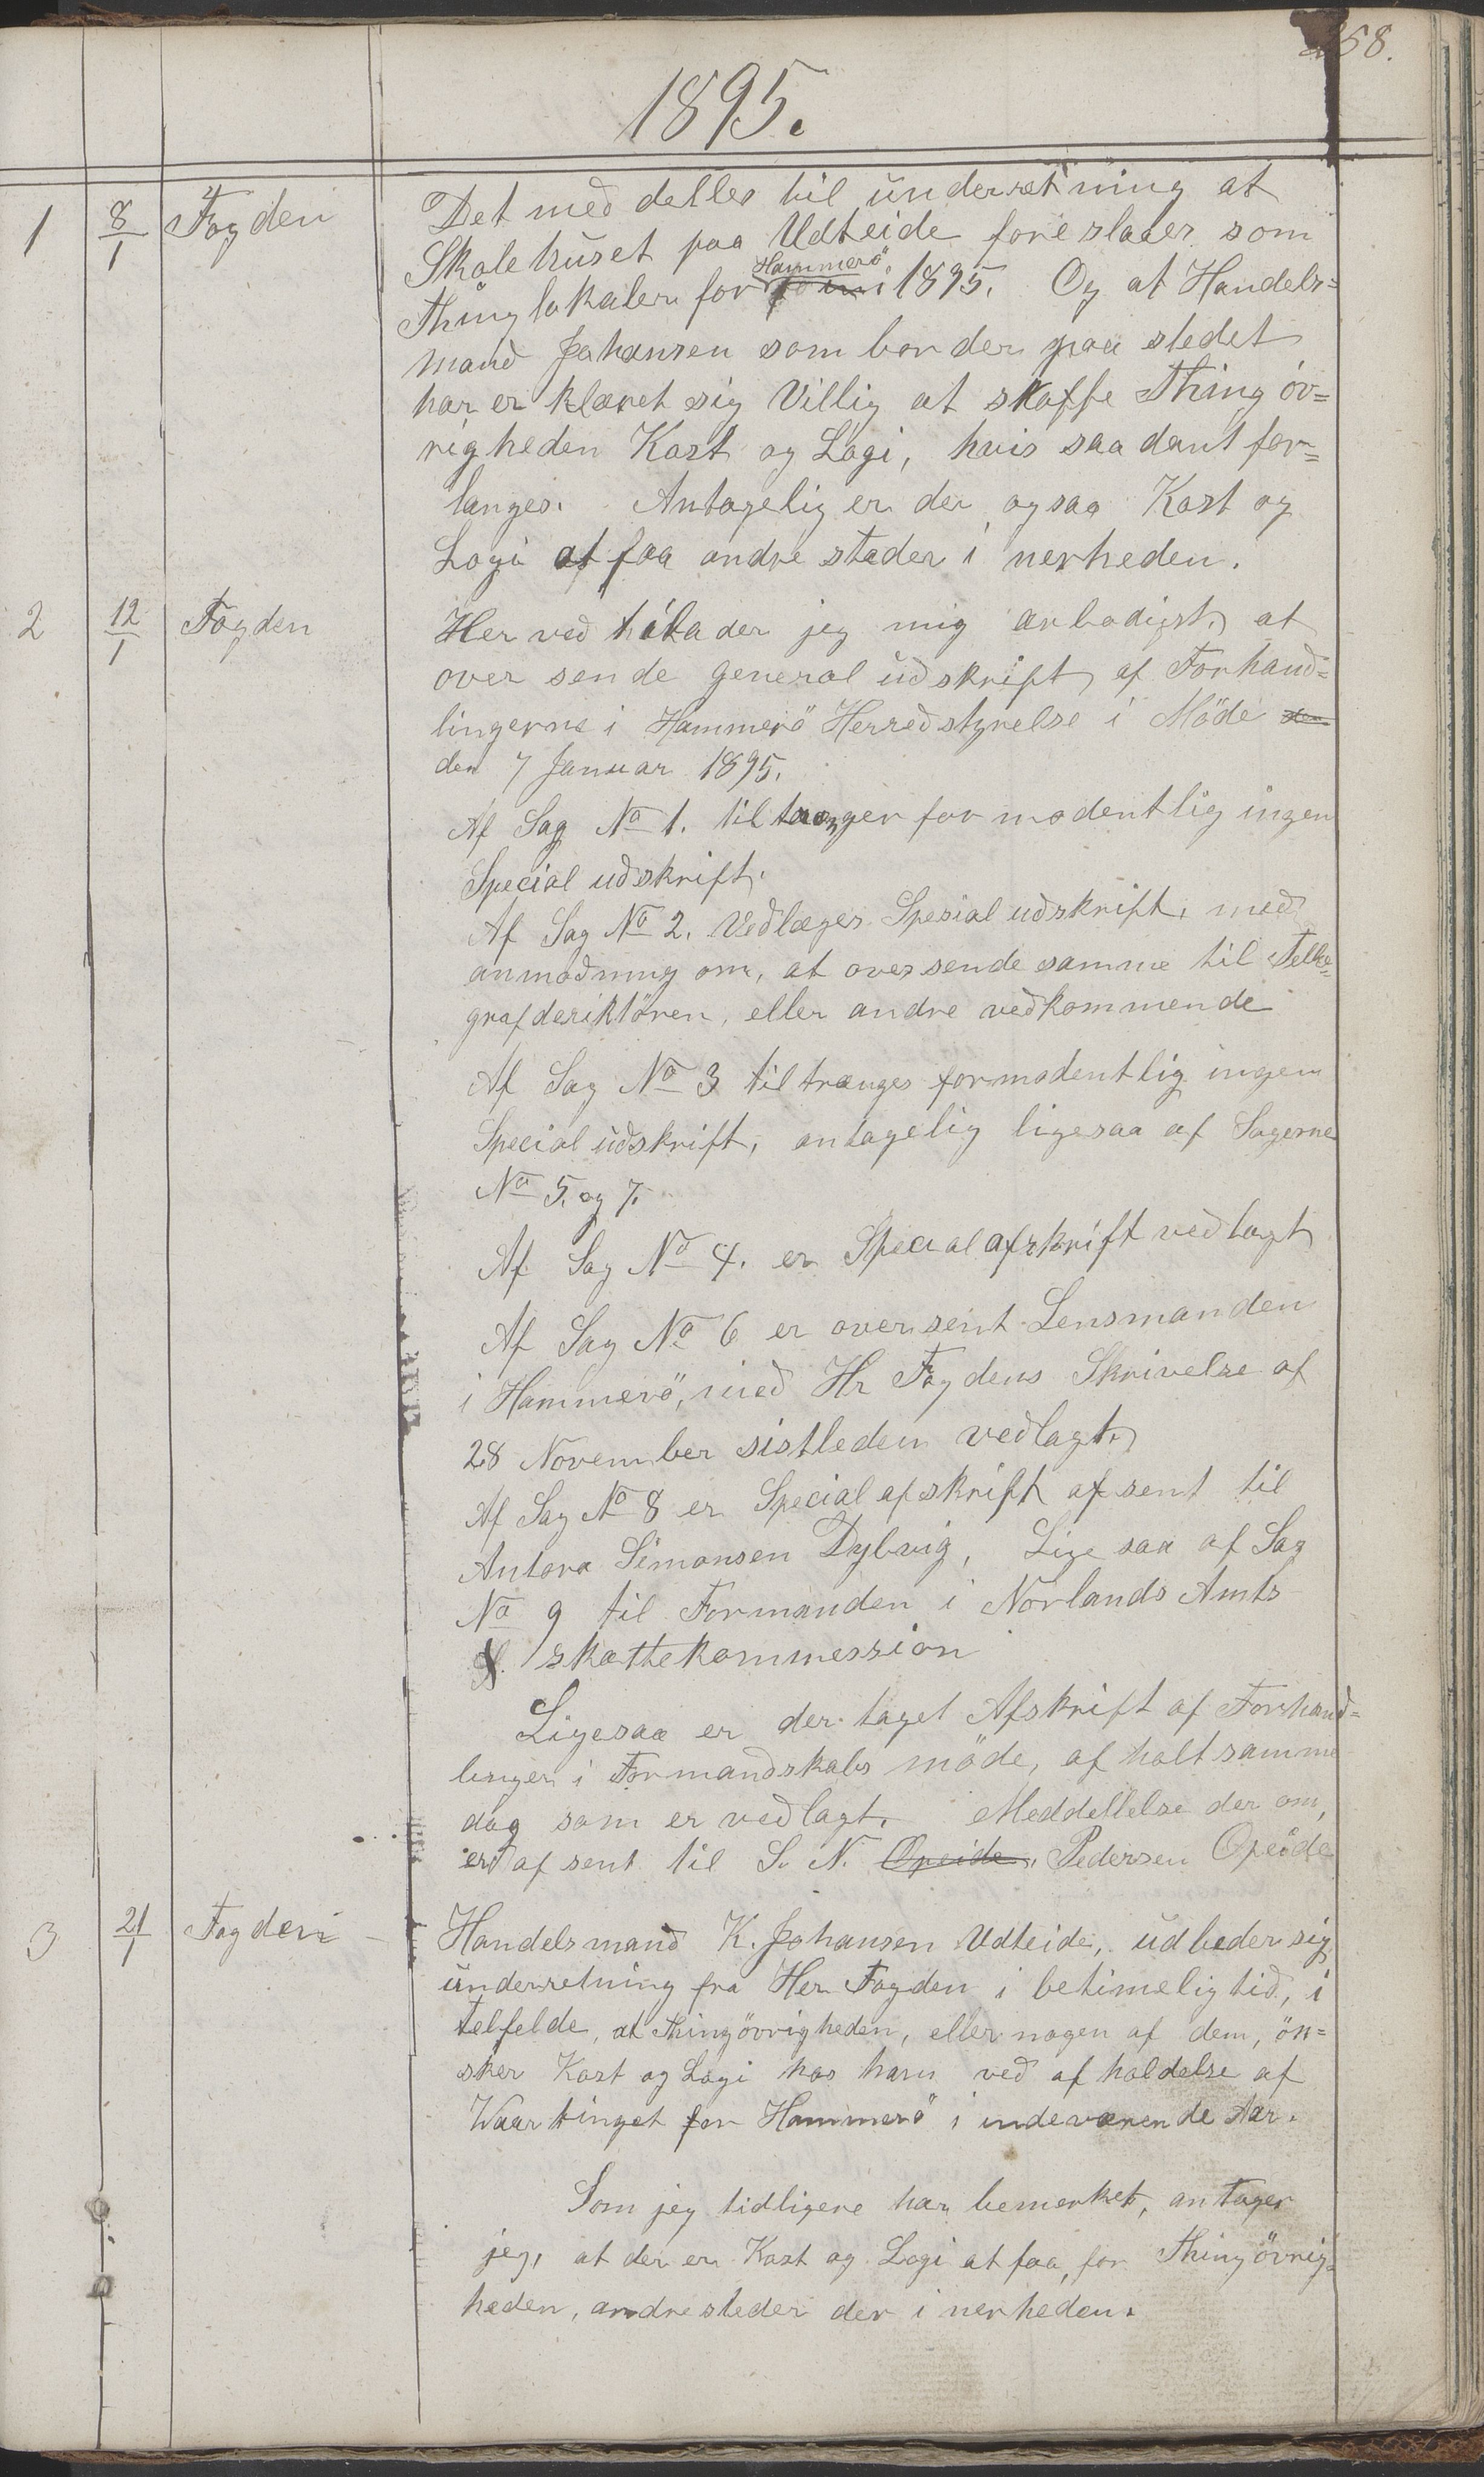 258.
1895.
1 8/1 Fogden
Det med delles til underretning at
Skolehuset paa Udteide foreslaaes som
Thinglokaler for Hammerö i 1895. Og at Handels=
mand Johansen som bor der paa stedet
har erklæret sig Villig at skaffe Thingöv=
righeden Kost og Logi, hvis saadant for=
langes. Antagelig er der ogsaa Kost og
Logi at faa andre steder i nerheden.
2 12/1 Fogden
Herved tilader jeg mig ærbødigst, at
oversende general udskrift af Forhand=
lingerne i Hammerö Herredstyrelse i Möde
den 7 Januar 1895.
Af Sag No 1. tiltrænges formodentlig ingen
Special udskrift.
Af Sag No 2. Vedlæges Spesial udskrift, med
anmodning om, at oversende samme til Tele=
grafderiktören, eller andre vedkommende
Af Sag No 3 tiltrænges formodentlig ingen
Special udskrift, antagelig ligesaa af Sagerne
No 5. og 7.
Af Sag No 4. er Special afskrift vedlagt
Af Sag No 6 er oversent Lensmanden
i Hammerö, med Hr Fogdens Skrivelse af
28 November sistleden vedlagt.
Af Sag No 8 er Special afskrift afsent til
Antora Simonsen Dybvig, Ligesaa af Sag
No 9 til Formanden i Norlands Amts
skattekommession
Ligesaa er der taget Afskrift af Forhand=
linger i Formandskabs möde, afholt samme
dag som er vedlagt. Meddellelse der om,
er afsent til S. N. Opeide. Pedersen Opeide
3 21/1 Fogden
Handelsmand K. Johansen Udteide, udbeder sig
underretning fra Her Fogden i betimelig tid, i
telfelde, at Thingövrigheden, eller nogen af dem, ön=
sker Kost og Logi hos ham ved afholdelse af
Waartinget for Hammerö i indeværende Aar.
Som jeg tidligere har bemerket, antager
jeg, at der er Kost og Logi at faa, for Thingövrig=
heden, andre steder der i nerheden.